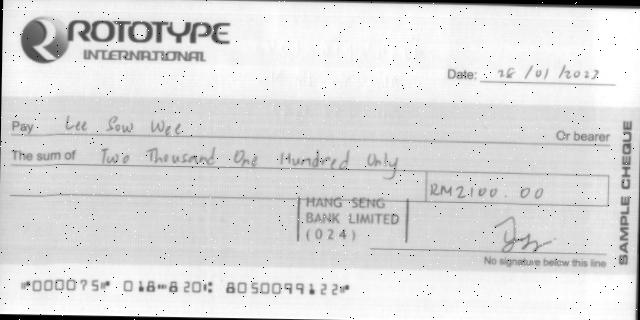 ROTOTYPE
INTERNATIONAL
Date: 28/01/2022
Pay Lee Sow Wee Or bearer
The sum of Two Thousand One Hundred Only
RM2100.00
HANG SENG
BANK LIMITED
(024)
No signature below this line
SAMPLE CHEQUE
⑈000075⑈ 018⑉820⑆ 8050099122⑈